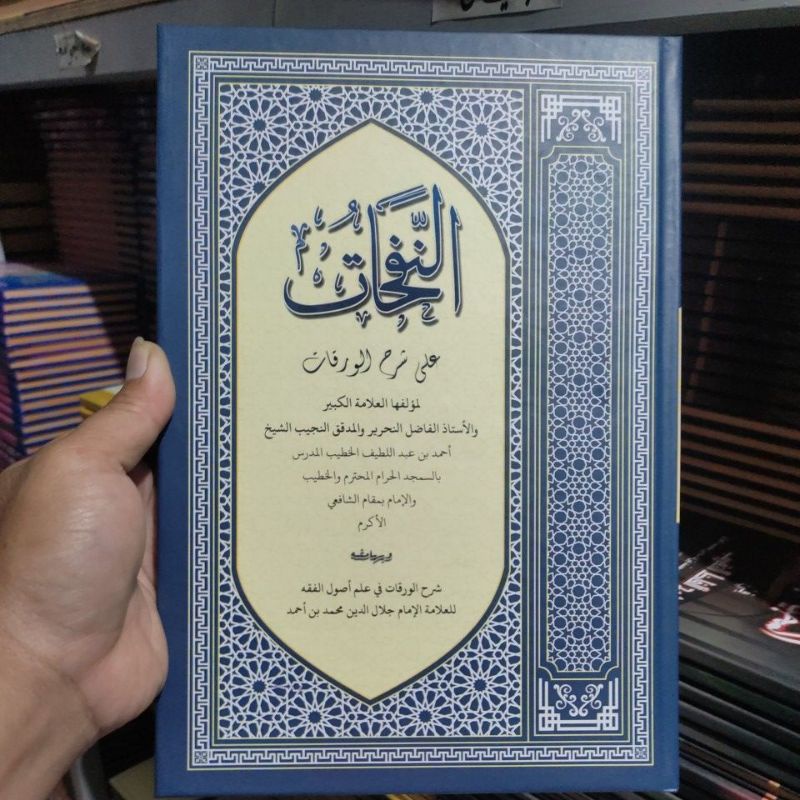 النَّفَحَاتُ
على شرح الورقات
لمؤلفها العلامة الكبير
والأستاذ الفاضل التحرير والمدقق النجيب الشيخ
أحمد بن عبد اللطيف الخطيب المدرس
بالسمجد الحرام المحترم والخطيب
والإمام بمقام الشافعي
الأكرم
وبهامشه
شرح الورقات في علم أصول الفقه
للعلامة الإمام جلال الدين محمد بن أحمد